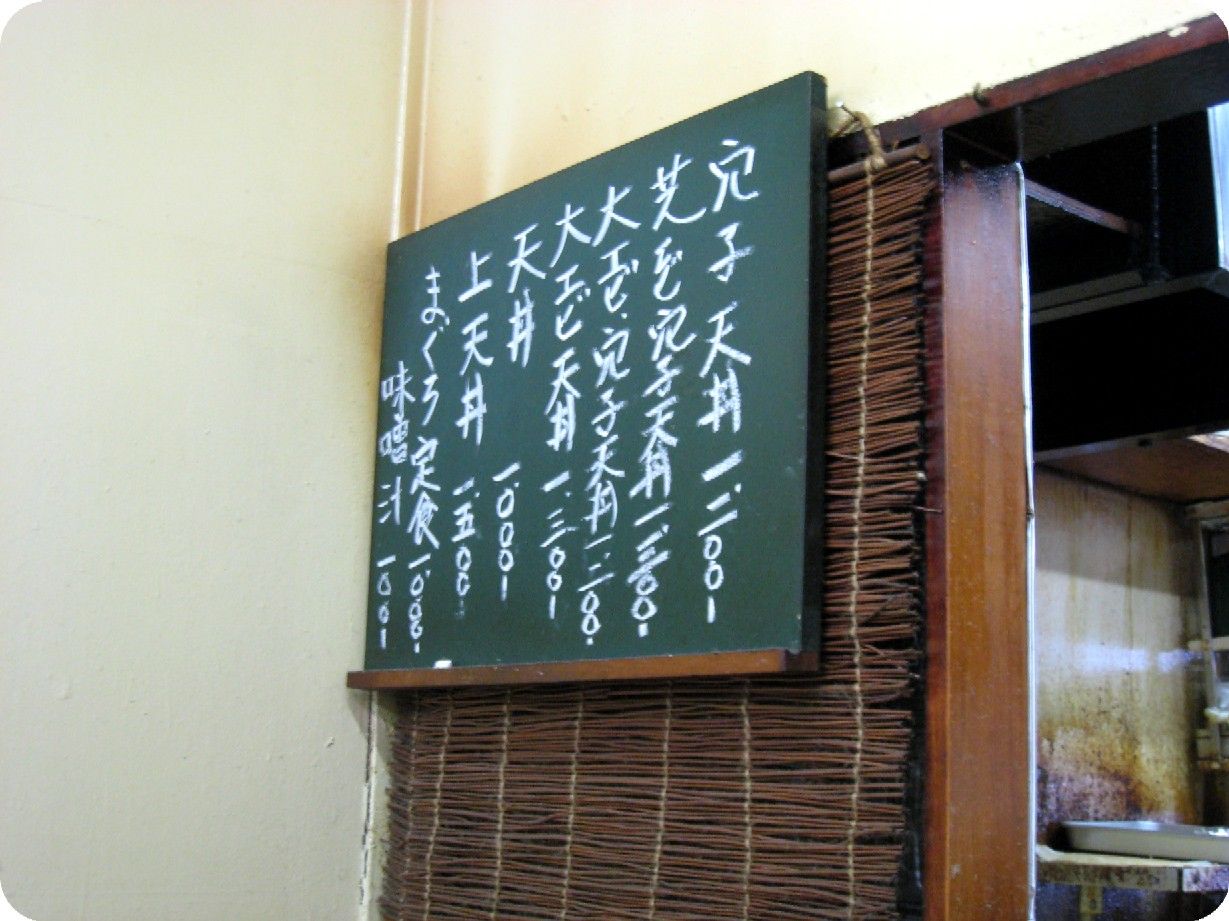 穴子天丼 一、二〇〇ー
芝エビ穴子天丼 一、三〇〇ー
大エビ、穴子天丼 一、二〇〇ー
大エビ天丼 一、三〇〇ー
天丼 一、〇〇〇ー
上天丼 一、五〇〇ー
まぐろ定食 一、〇〇〇ー
味噌汁 一〇〇ー